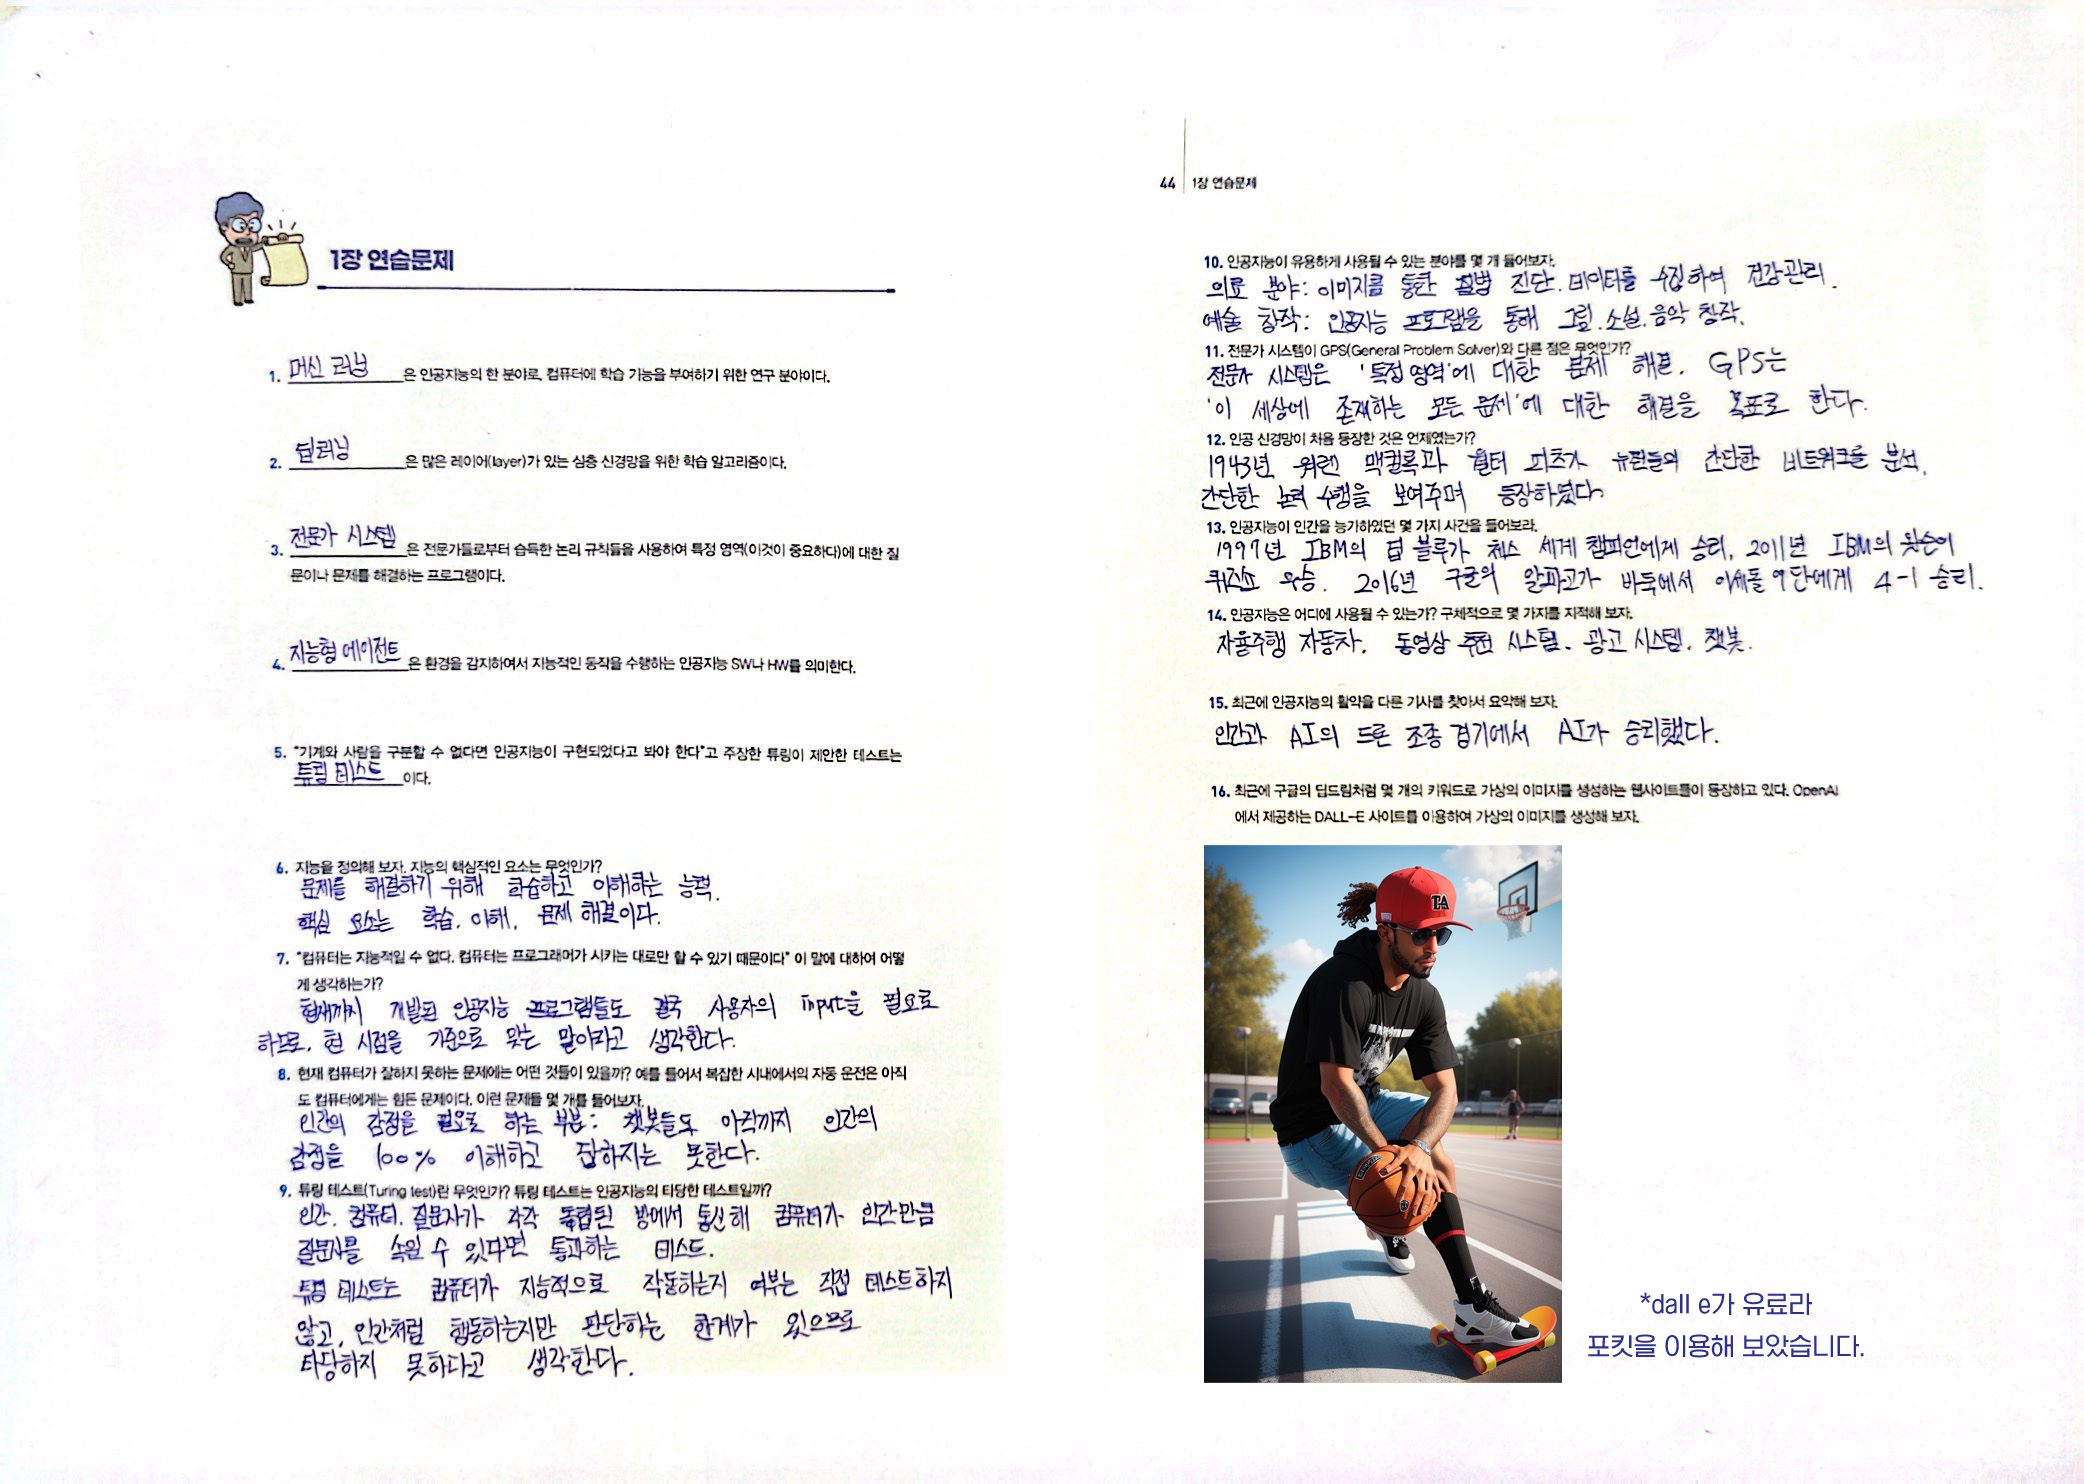 1장 연습문제
1. 머신 러닝 은 인공지능의 한 분야로, 컴퓨터에 학습 기능을 부여하기 위한 연구 분야이다.
2. 딥러닝 은 많은 레이어(layer)가 있는 심층 신경망을 위한 학습 알고리즘이다.
3. 전문가 시스템 은 전문가들로부터 습득한 논리 규칙들을 사용하여 특정 영역(이것이 중요하다)에 대한 질
문이나 문제를 해결하는 프로그램이다.
4. 지능형 에이전트 은 환경을 감지하여서 지능적인 동작을 수행하는 인공지능 SW나 HW를 의미한다.
5. "기계와 사람을 구분할 수 없다면 인공지능이 구현되었다고 봐야 한다"고 주장한 튜링이 제안한 테스트는
튜링 테스트 이다.
6. 지능을 정의해 보자. 지능의 핵심적인 요소는 무엇인가?
문제를 해결하기 위해 학습하고 이해하는 능력.
핵심 요소는 학습, 이해, 문제 해결이다.
7. "컴퓨터는 지능적일 수 없다. 컴퓨터는 프로그래머가 시키는 대로만 할 수 있기 때문이다" 이 말에 대하여 어떻
게 생각하는가?
현재까지 개발된 인공지능 프로그램들도 결국 사용자의 input을 필요로
하므로, 현 시점을 기준으로 맞는 말이라고 생각한다.
8. 현재 컴퓨터가 잘하지 못하는 문제에는 어떤 것들이 있을까? 예를 들어서 복잡한 시내에서의 자동 운전은 아직
도 컴퓨터에게는 힘든 문제이다. 이런 문제들 몇 개를 들어보자.
인간의 감정을 필요로 하는 부분: 챗봇들도 아직까지 인간의
감정을 100% 이해하고 답하지는 못한다.
9. 튜링 테스트(Turing test)란 무엇인가? 튜링 테스트는 인공지능의 타당한 테스트일까?
인간, 컴퓨터, 질문자가 각각 독립된 방에서 통신해 컴퓨터가 인간만큼
질문자를 속일 수 있다면 통과하는 테스트.
튜링 테스트는 컴퓨터가 지능적으로 작동하는지 여부는 직접 테스트하지
않고, 인간처럼 행동하는지만 판단하는 한계가 있으므로
타당하지 못하다고 생각한다.
44 1장 연습문제
10. 인공지능이 유용하게 사용될 수 있는 분야를 몇 개 들어보자.
의료 분야: 이미지를 통한 질병 진단. 데이터를 수집하여 건강관리.
예술 창작: 인공지능 프로그램을 통해 그림, 소설, 음악 창작.
11. 전문가 시스템이 GPS(General Problem Solver)와 다른 점은 무엇인가?
전문가 시스템은 '특정 영역'에 대한 문제 해결. GPS는
'이 세상에 존재하는 모든 문제'에 대한 해결을 목표로 한다.
12. 인공 신경망이 처음 등장한 것은 언제였는가?
1943년 워렌 맥컬록과 월터 피츠가 뉴런들의 간단한 네트워크를 분석,
간단한 논리 수행을 보여주며 등장하였다.
13. 인공지능이 인간을 능가하였던 몇 가지 사건을 들어보라.
1997년 IBM의 딥 블루가 체스 세계 챔피언에게 승리, 2011년 IBM의 왓슨이
퀴즈쇼 우승. 2016년 구글의 알파고가 바둑에서 이세돌 9단에게 4-1 승리.
14. 인공지능은 어디에 사용될 수 있는가? 구체적으로 몇 가지를 지적해 보자.
자율주행 자동차. 동영상 추천 시스템. 광고 시스템. 챗봇.
15. 최근에 인공지능의 활약을 다룬 기사를 찾아서 요약해 보자.
인간과 AI의 드론 조종 경기에서 AI가 승리했다.
16. 최근에 구글의 딥드림처럼 몇 개의 키워드로 가상의 이미지를 생성하는 웹사이트들이 등장하고 있다. OpenAI
에서 제공하는 DALL-E 사이트를 이용하여 가상의 이미지를 생성해 보자.
*dall e가 유료라
포킷을 이용해 보았습니다.